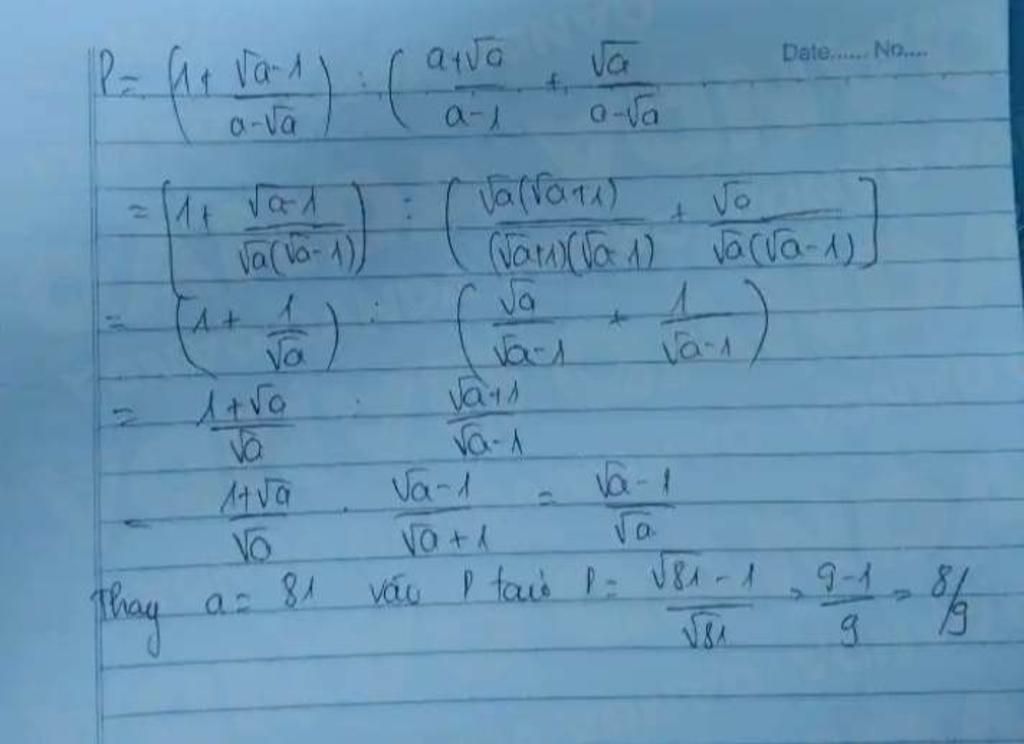 Date...... No....
P = (1 + (√a - 1)/(a - √a)) : ((a + √a)/(a - 1) + √a/(a - √a)
= [1 + (√a - 1)/(√a(√a - 1))) : (√a(√a + 1)/((√a + 1)(√a - 1)) + √a/(√a(√a - 1))]
= (1 + 1/√a) : (√a/(√a - 1) + 1/(√a - 1))
= (1 + √a)/√a : (√a + 1)/(√a - 1)
= (1 + √a)/√a . (√a - 1)/(√a + 1) = (√a - 1)/√a
Thay a = 81 vào P P = (√81 - 1)/√81 = (9 - 1)/9 = 8/9